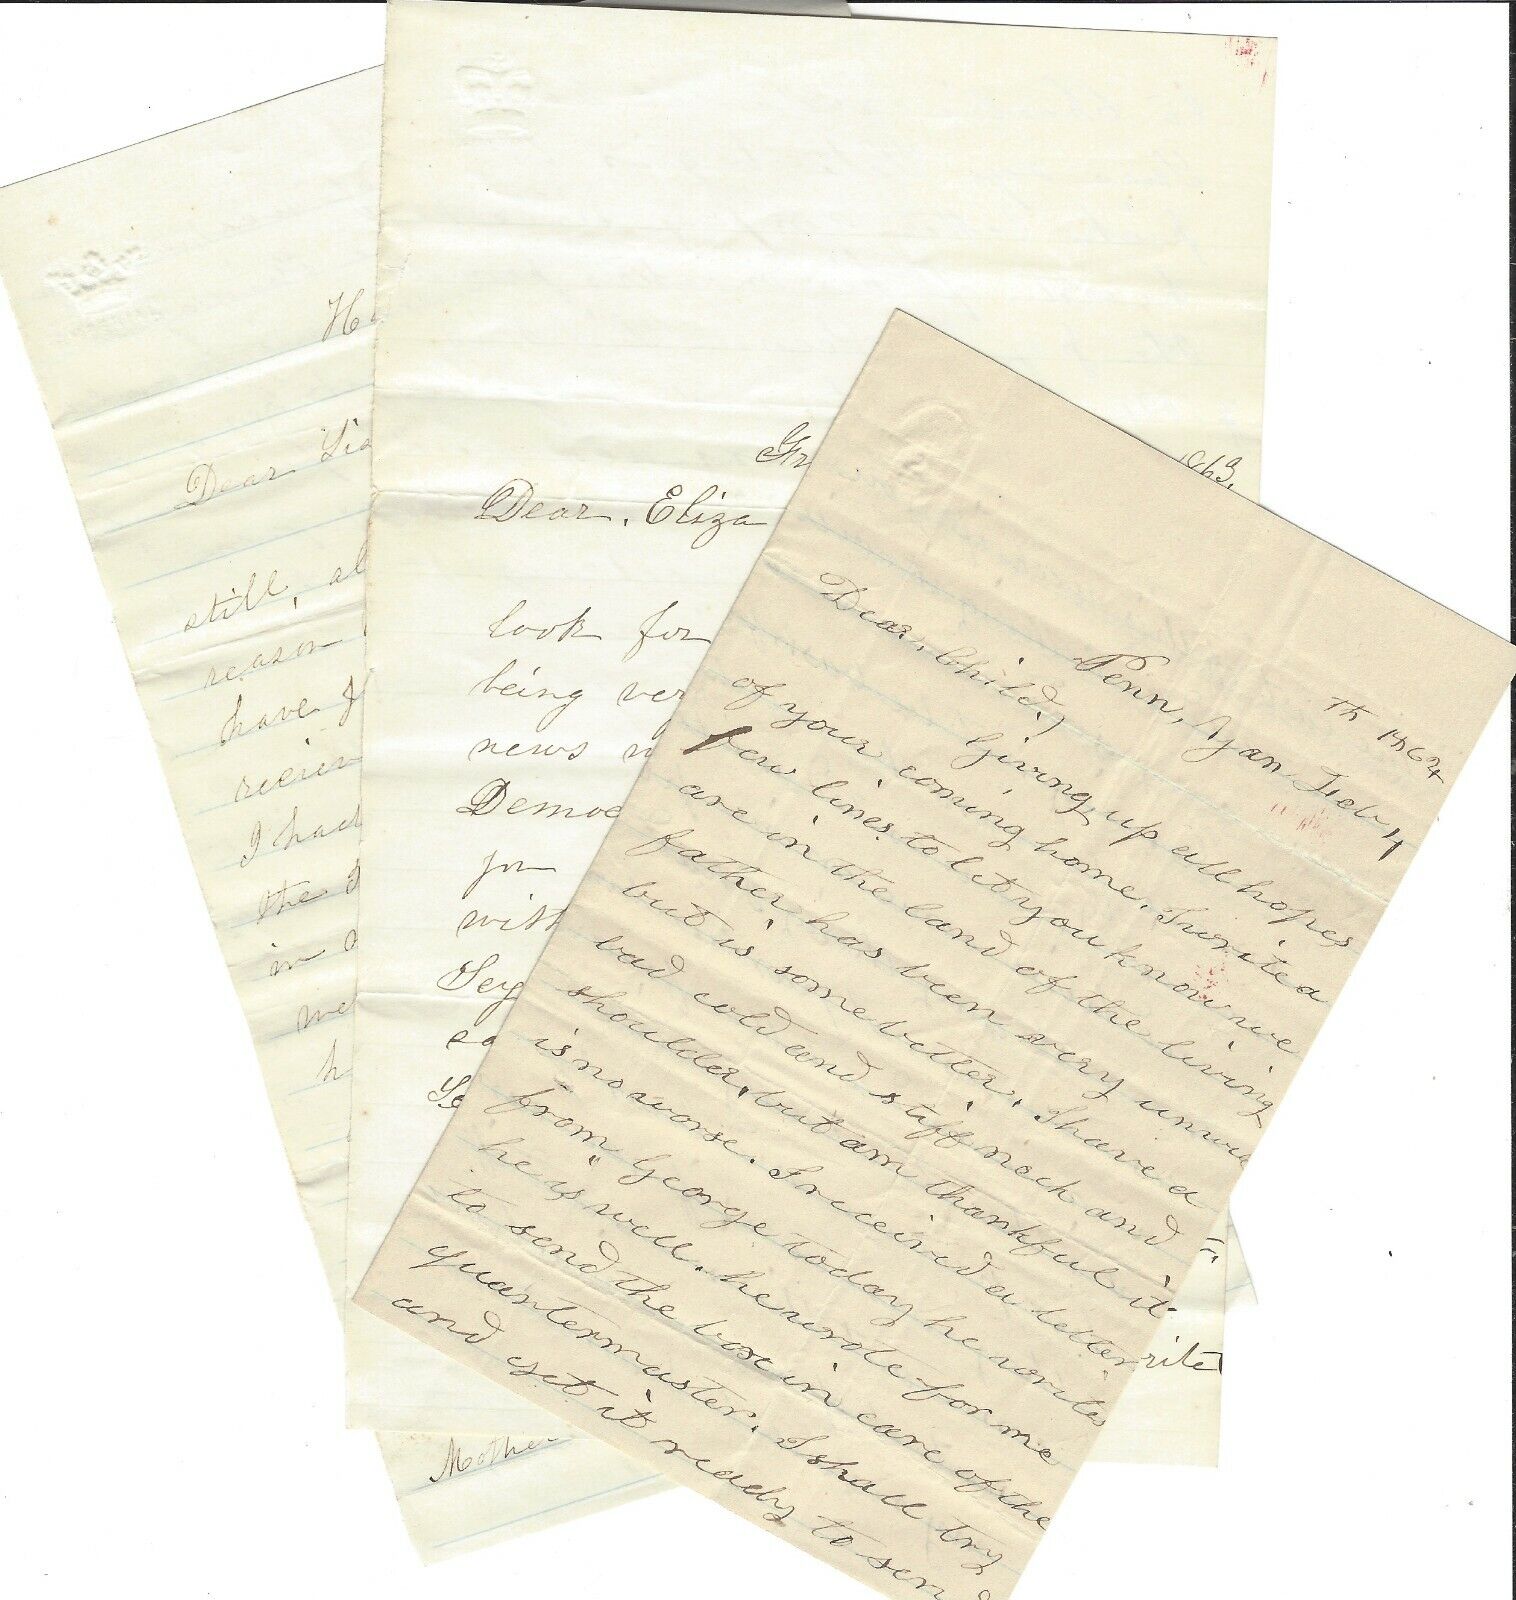 H
Dear Sis
still, al
reason
have
reciev
I had
the
in
we
h
Mother
Gr
1863.
Dear, Eliza
look for
being ver
news
Democ
you
with
Sey
ea
Se
rite
Penn, Yan Feb 4
Th 1864
Dear, Child,
Giving up all hopes
of your coming home, I write a
few lines to let you know we
are in the land of the living
father has been very unwe
but is some better. I have a
bad cold and stiff neck and
shoulder, but am thankful it
is no worse. I received a letter
from George today he writes
he is well. he wrote for me
to send the box in care of the
quartermaster. I shall try
and get it ready to send